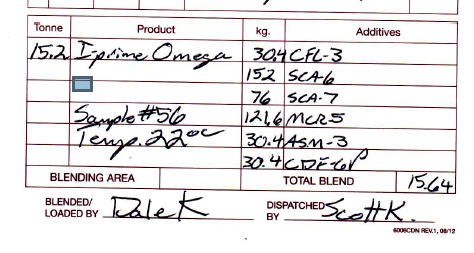 Tonne Product kg. Additives
15.2 I-prime Omega 30.4 CFL-3
152 SCA-6
76 SCA-7
Sample #56 121.6 MCR5
Temp. 22°C 30.4 ASM-3
30.4 CDF-6P
BLENDING AREA TOTAL BLEND 15.64
BLENDED/ LOADED BY Dale K DISPATCHED BY Scott K.
6006CDN REV.1, 08/12